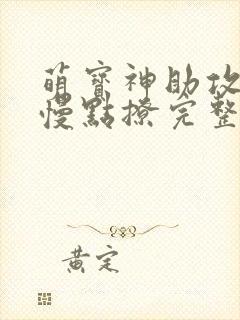 萌寶神助攻
慢點撩完整
黄定